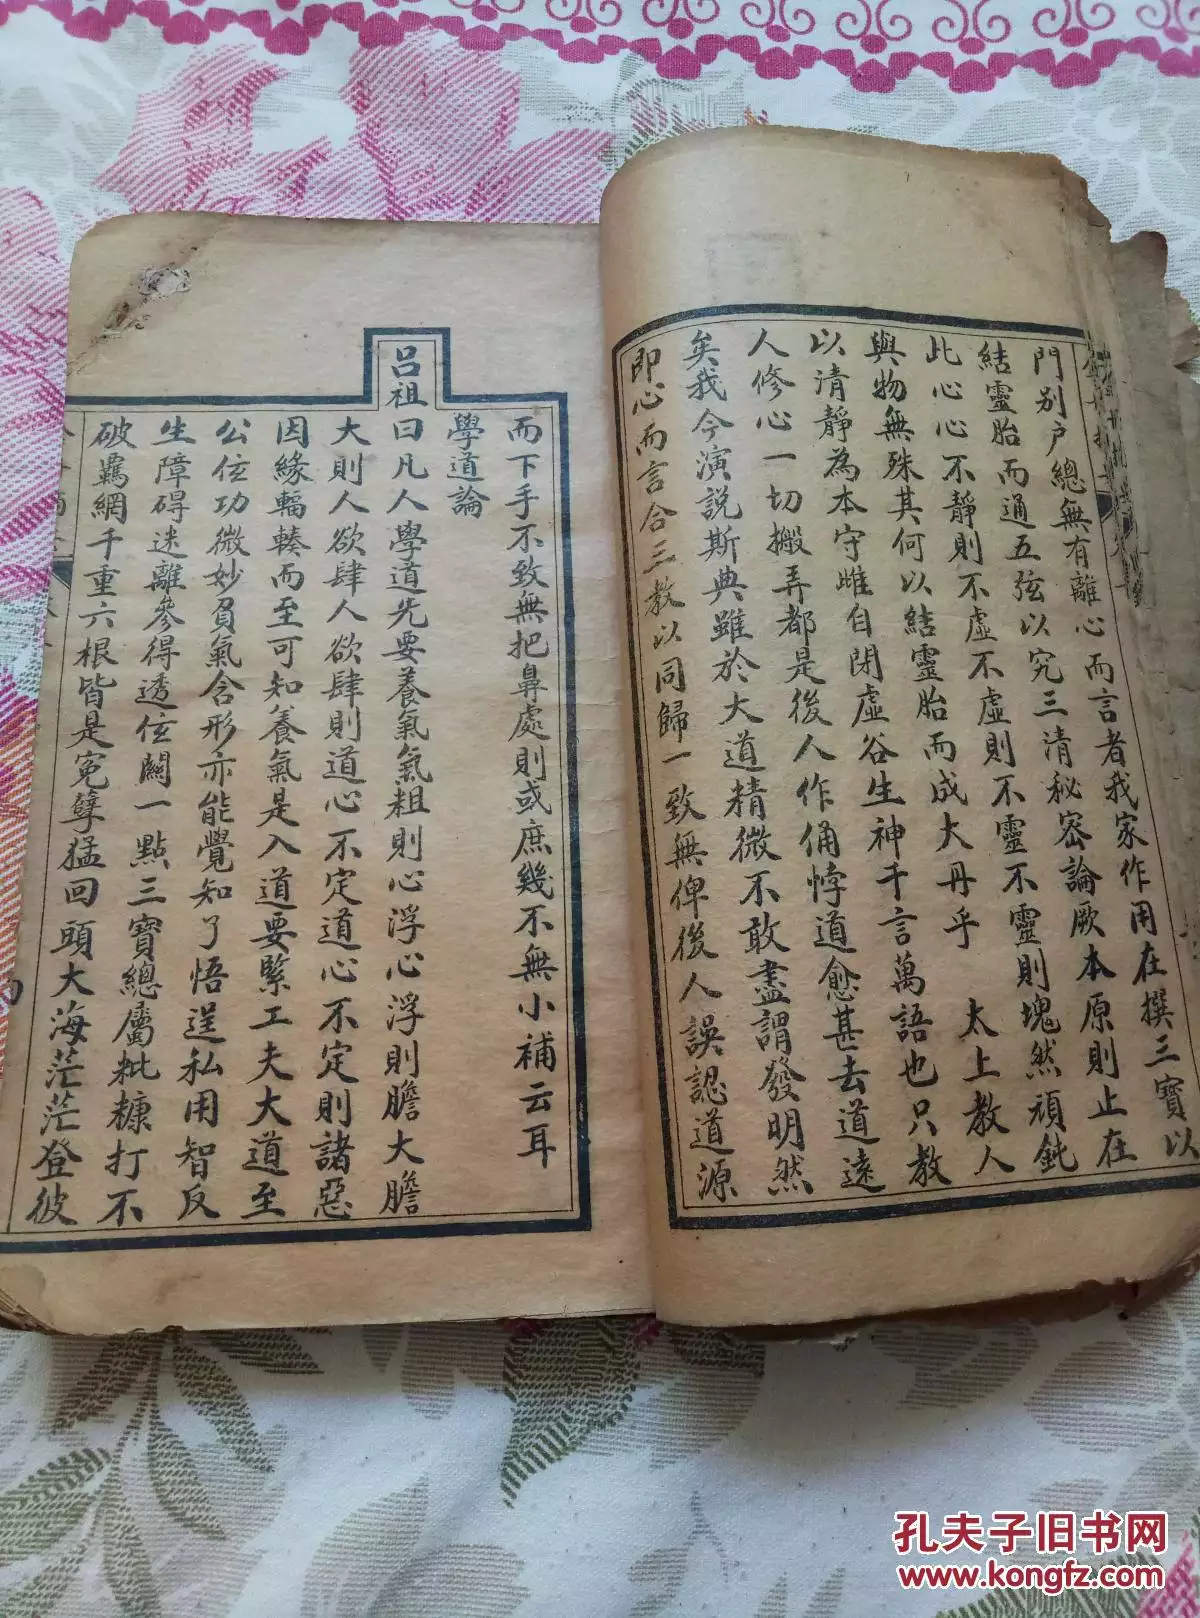 門別户總無有離心而言者我家作用在撰三寶以
結靈胎而通五弦以究三清秘密論厥本原則止在
此心心不靜則不虛不虛則不靈不靈則塊然頑鈍
與物無殊其何以結靈胎而成大丹乎 太上教人
以清靜為本守雌自閉虛谷生神千言萬語也只教
人修心一切搬弄都是後人作俑悖道愈甚去道遠
矣我今演説斯典雖於大道精微不敢盡謂發明然
即心而言合三教以同歸一致無俾後人誤認道源
而下手不致無把鼻處則或庶幾不無小補云耳
學道論
吕祖曰凡人學道先要養氣氣粗則心浮心浮則膽大膽
大則人欲肆人欲肆則道心不定道心不定則諸惡
因緣輻輳而至可知養氣是入道要緊工夫大道至
公位功微妙負氣含形亦能覺知了悟逞私用智反
生障碍迷離參得透位關一點三寶總屬粃糠打不
破羈網千重六根皆是寃孽猛回頭大海茫茫登彼
孔夫子旧书网
www.kongfz.com